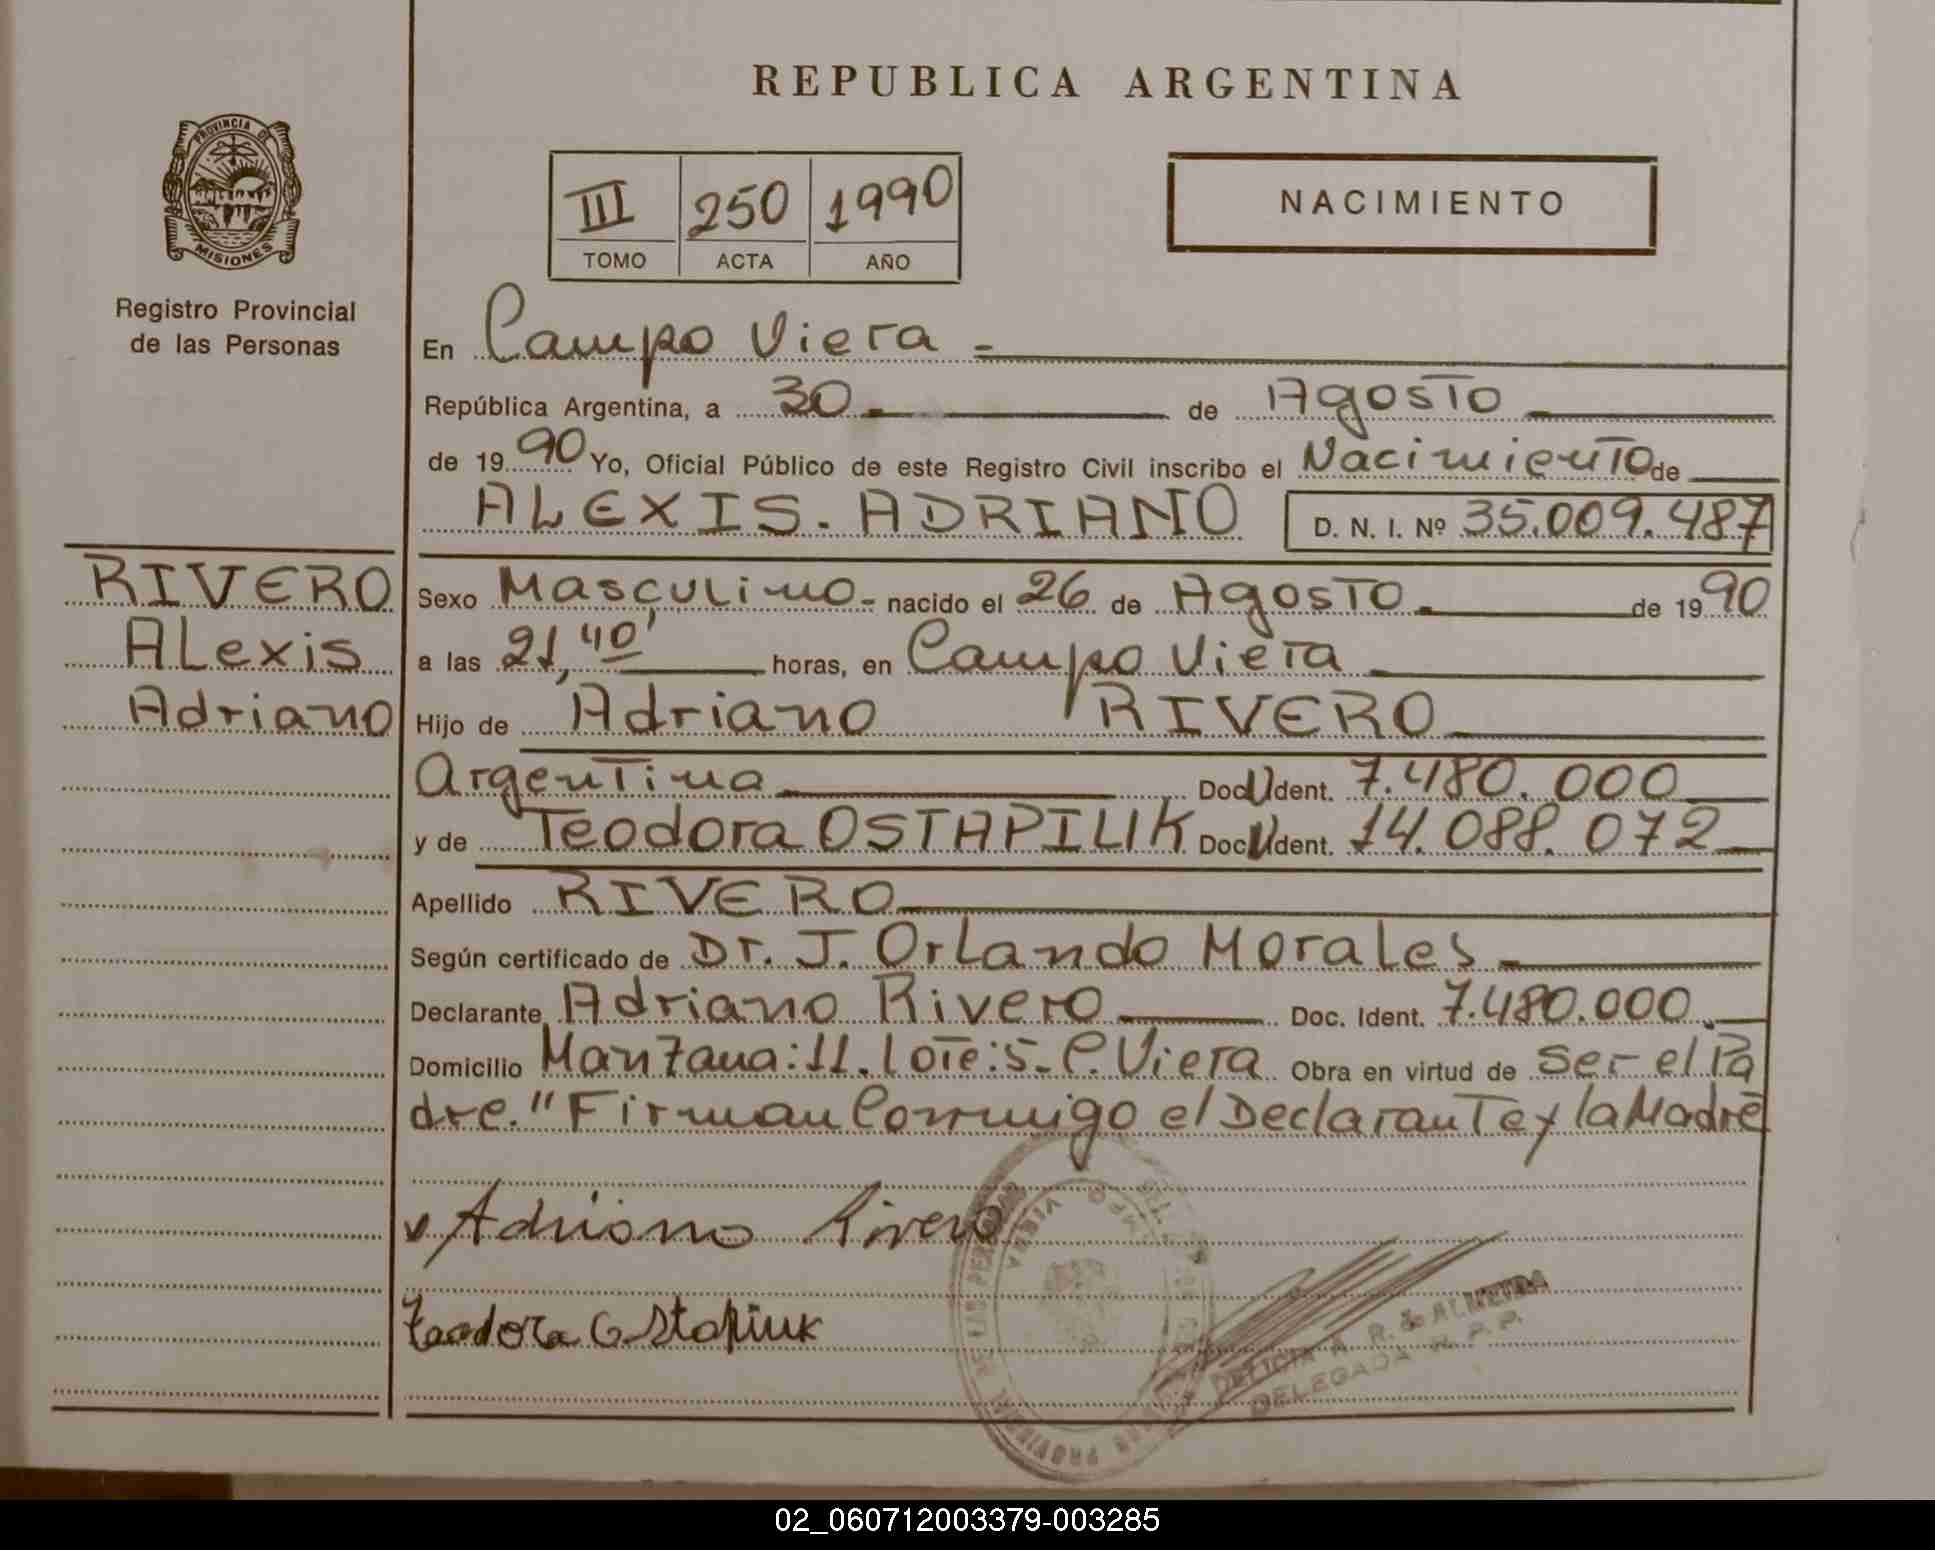 REPUBLICA ARGENTINA
PROVINCIA DE
MISIONES
Registro Provincial
de las Personas
III 250 1990
TOMO ACTA AÑO
NACIMIENTO
En Campo Viera -
República Argentina, a 30 de Agosto
de 1990 Yo, Oficial Público de este Registro Civil inscribo el Nacimiento de
ALEXIS. ADRIANO D. N. I. Nº 35.009.487
RIVERO
Alexis
Adriano
Sexo Masculino - nacido el 26 de Agosto de 1990
a las 21,40' horas, en Campo Viera
Hijo de Adriano RIVERO
Argentina Doc U Ident. 7.480.000
y de Teodora OSTAPIUK Doc U Ident. 14.088.072
Apellido RIVERO
Según certificado de Dr. J. Orlando Morales
Declarante Adriano Rivero Doc. Ident. 7.480.000.
Domicilio Manzana: 11. lote: 5- C. Viera Obra en virtud de Ser el Pa
dre." Firman Conmigo el Declarante y la Madre
Adriano Rivero
Teodora Ostapiuk
VIERA
DELICIA A. R. de ALMEIDA
DELEGADA R. P. P.
02_060712003379-003285